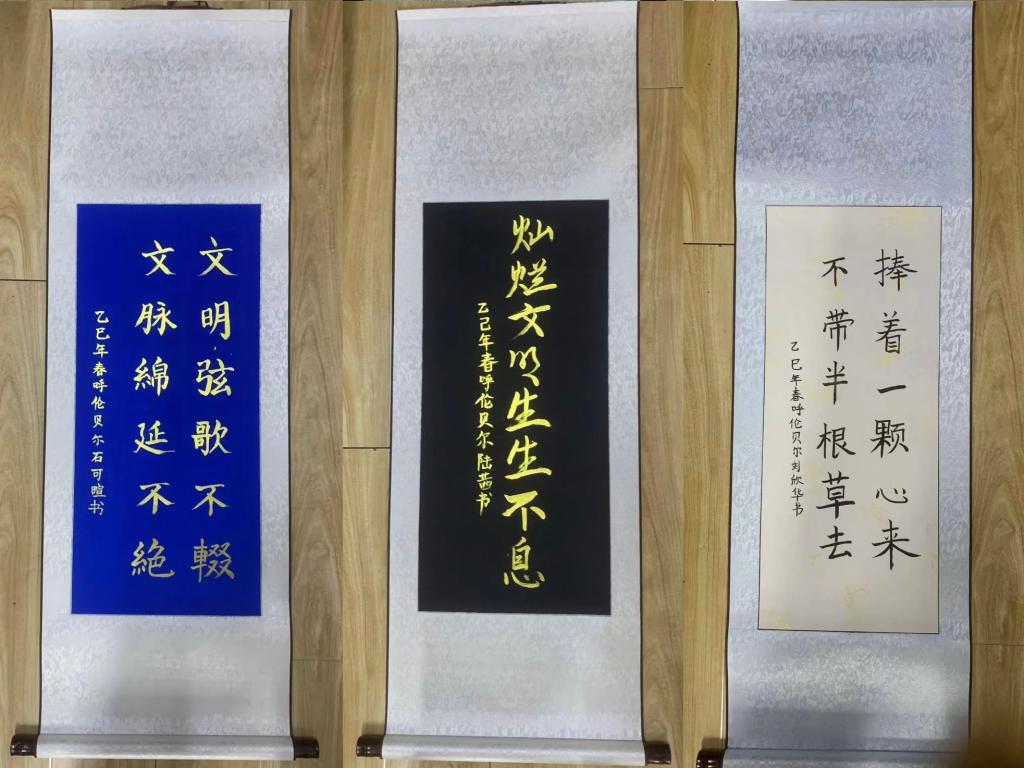 文明弦歌不辍
文脉綿延不絶
乙巳年春呼伦贝尔石可暄书
灿烂文明生生不息
乙己年春呼伦贝尔陆茜书
捧着一颗心来
不带半根草去
乙巳年春呼伦贝尔刘欣华书